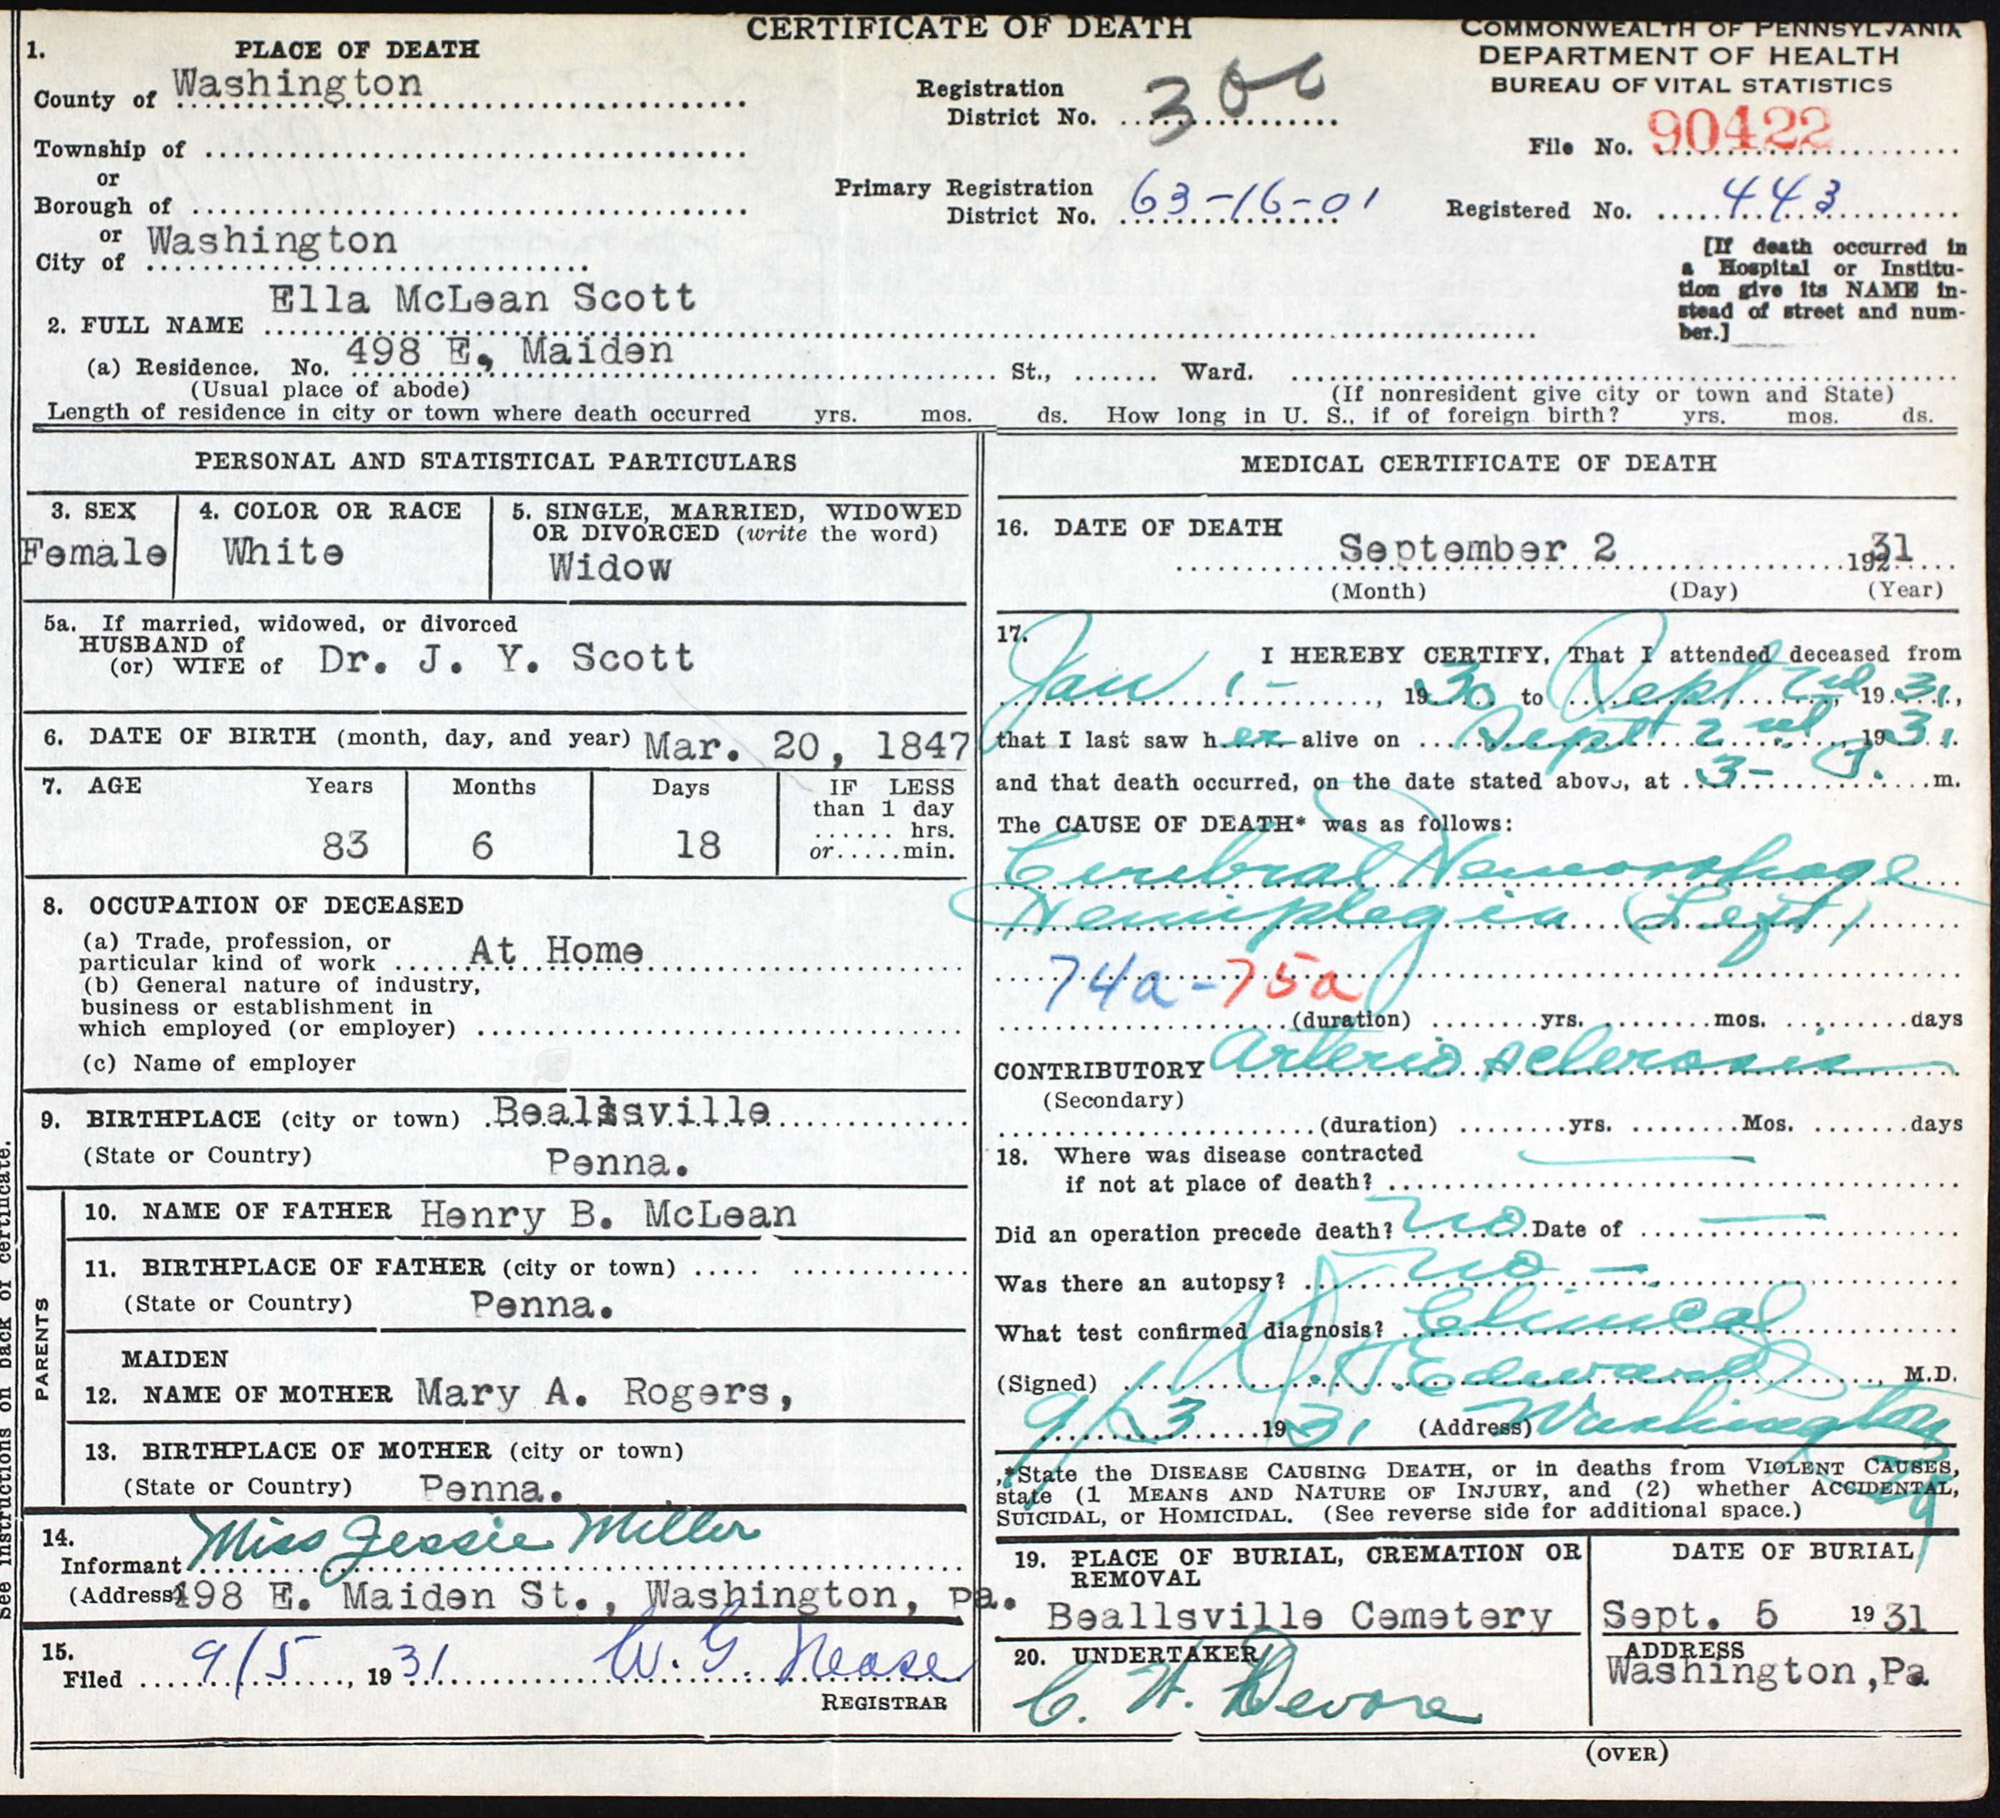 CERTIFICATE OF DEATH
COMMONWEALTH OF PENNSYLVANIA
DEPARTMENT OF HEALTH
BUREAU OF VITAL STATISTICS
1. PLACE OF DEATH
County of Washington
Township of
or
Borough of
or
City of Washington
Registration
District No. 300
Primary Registration
District No. 63-16-01
File No. 90422
Registered No. 443
[If death occurred in
a Hospital or Institu-
tion give its NAME in-
stead of street and num-
ber.]
2. FULL NAME Ella McLean Scott
(a) Residence. No. 498 E. Maiden St., Ward.
(Usual place of abode) (If nonresident give city or town and State)
Length of residence in city or town where death occurred yrs. mos. ds. How long in U. S., if of foreign birth? yrs. mos. ds.
PERSONAL AND STATISTICAL PARTICULARS
3. SEX
Female
4. COLOR OR RACE
White
5. SINGLE, MARRIED, WIDOWED
OR DIVORCED (write the word)
Widow
5a. If married, widowed, or divorced
HUSBAND of
(or) WIFE of Dr. J. Y. Scott
6. DATE OF BIRTH (month, day, and year) Mar. 20, 1847
7. AGE Years Months Days IF LESS
than 1 day
...... hrs.
or.....min.
83 6 18
8. OCCUPATION OF DECEASED
(a) Trade, profession, or
particular kind of work At Home
(b) General nature of industry,
business or establishment in
which employed (or employer)
(c) Name of employer
9. BIRTHPLACE (city or town) Beallsville
(State or Country) Penna.
PARENTS
10. NAME OF FATHER Henry B. McLean
11. BIRTHPLACE OF FATHER (city or town)
(State or Country) Penna.
MAIDEN
12. NAME OF MOTHER Mary A. Rogers,
13. BIRTHPLACE OF MOTHER (city or town)
(State or Country) Penna.
14.
Informant Miss Jessie Miller
(Address 498 E. Maiden St., Washington, Pa.
15.
Filed 9/5, 1931 W. G. Nease
REGISTRAR
MEDICAL CERTIFICATE OF DEATH
16. DATE OF DEATH
September 2 19231
(Month) (Day) (Year)
17.
I HEREBY CERTIFY, That I attended deceased from
Jan 1-, 1930 to Sept 2nd, 1931,
that I last saw her alive on Sept 2nd, 1931.
and that death occurred, on the date stated above, at 3- P. m.
The CAUSE OF DEATH* was as follows:
Cerebral Hemorrhage
Hemiplegia (Left)
74a-75a
(duration) yrs. mos. days
CONTRIBUTORY Arterio sclerosis
(Secondary)
(duration) yrs. Mos. days
18. Where was disease contracted
if not at place of death?
Did an operation precede death? no Date of
Was there an autopsy? no -
What test confirmed diagnosis? Clinical
(Signed) Edwards, M.D.
9/3 1931 (Address) Washington
Pa
*State the DISEASE CAUSING DEATH, or in deaths from VIOLENT CAUSES,
state (1 MEANS AND NATURE OF INJURY, and (2) whether ACCIDENTAL,
SUICIDAL, or HOMICIDAL. (See reverse side for additional space.)
19. PLACE OF BURIAL, CREMATION OR
REMOVAL
Beallsville Cemetery
DATE OF BURIAL
Sept. 5 1931
20. UNDERTAKER
C. H. Devore
ADDRESS
Washington,Pa
(OVER)
See instructions on back of certificate.